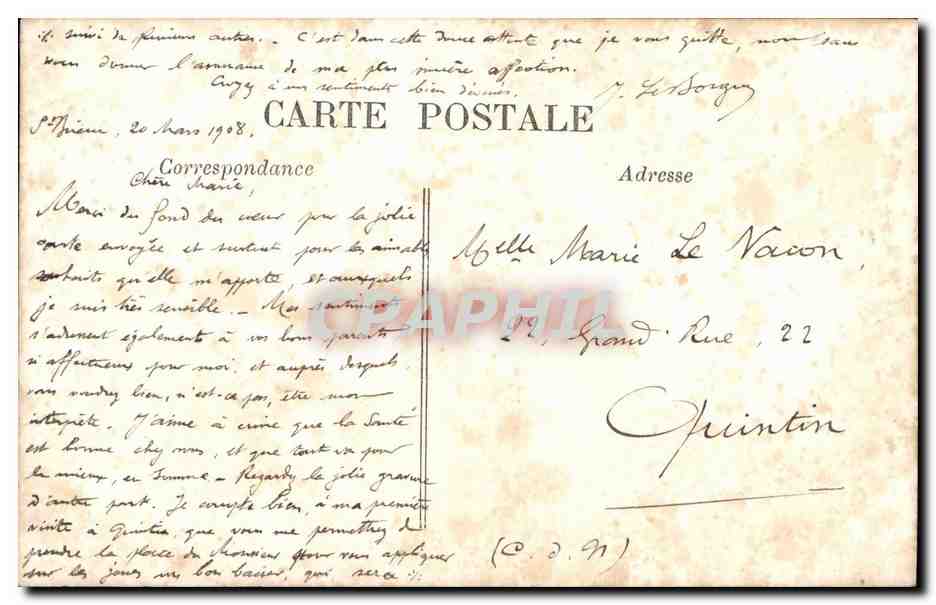 ·/. suivi de plusieurs autres. - C'est dans cette douce attente que je vous quitte, non sans
vous donner l'assurance de ma plus sincère affection.
Croyez à mes sentiments bien dévoués.
J. Le Borgne
CARTE POSTALE
St Brieuc, 20 Mars 1908.
Correspondance
Chère Marie,
Merci du fond du cœur pour la jolie
carte envoyée et surtout pour les aimables
souhaits qu'elle m'apporte, et auxquels
je suis très sensible. - Mes sentiments
s'adressent également à vos bons parents
si affectueux pour moi, et auprès desquels,
vous voudrez bien, n'est-ce pas, être mon
interprète. J'aime à croire que la Santé
est bonne chez vous, et que tout va pour
le mieux, en somme - Regardez la jolie gravure
d'autre part. Je compte bien, à ma première
visite à Quintin, que vous me permettrez de
prendre la place du Monsieur pour vous appliquer
sur les joues un bon baiser, qui sera ·/.
Adresse
Melle Marie Le Nacon,
22, Grand Rue, 22
Quintin
(C. d. N)
CPAPHIL